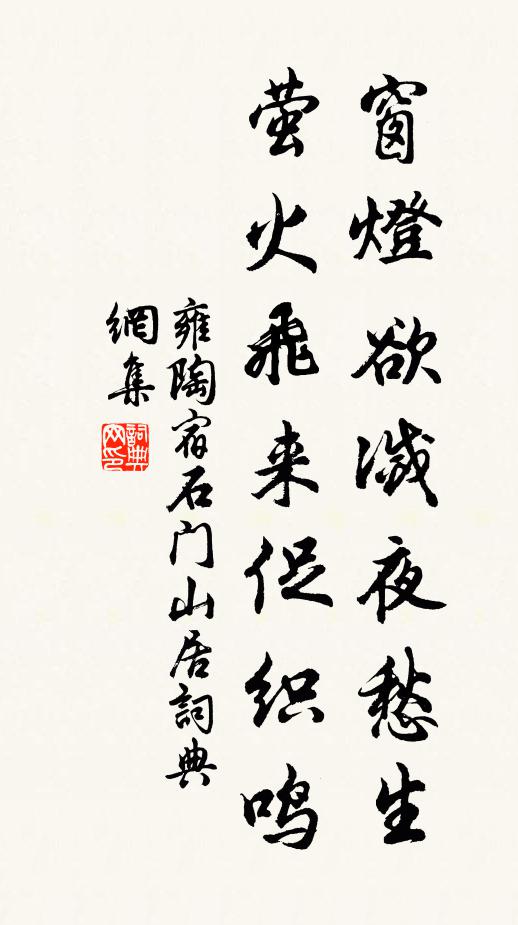 窗燈欲滅夜愁生
萤火飛来促织鸣
雍陶宿石门山居詞典
網集
詞典网印